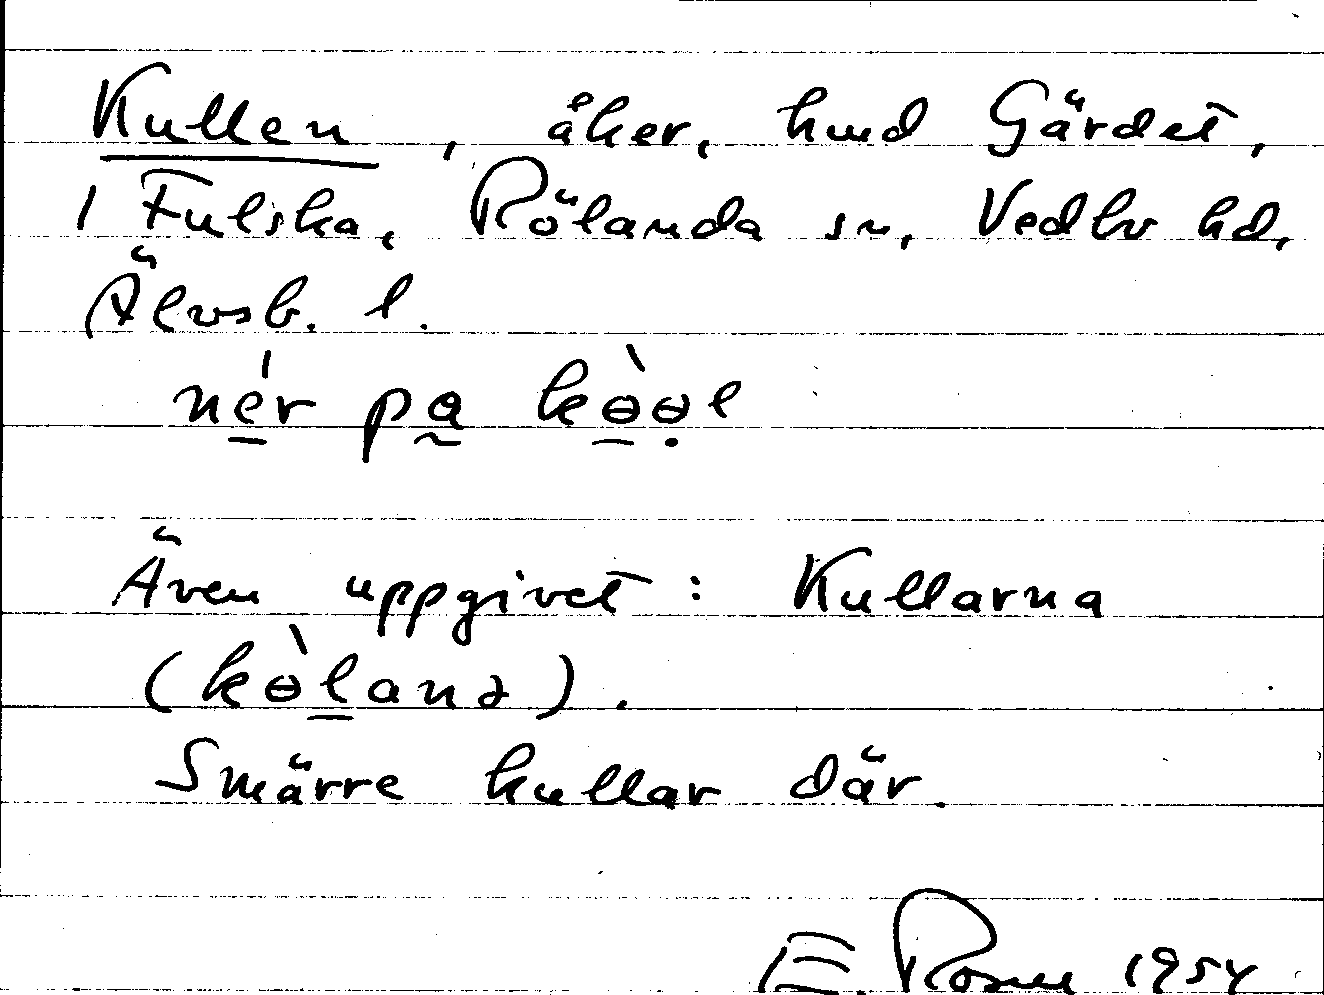 Kullen, åker, hmd Gärdet,
1 Fulska, Rölanda sn, Vedbo hd,
Älvsb. l.
nér pa kòɵl
Även uppgivet: Kullarna
(kɵ̀lanə).
Smärre kullar där.
E. Rosell 1954